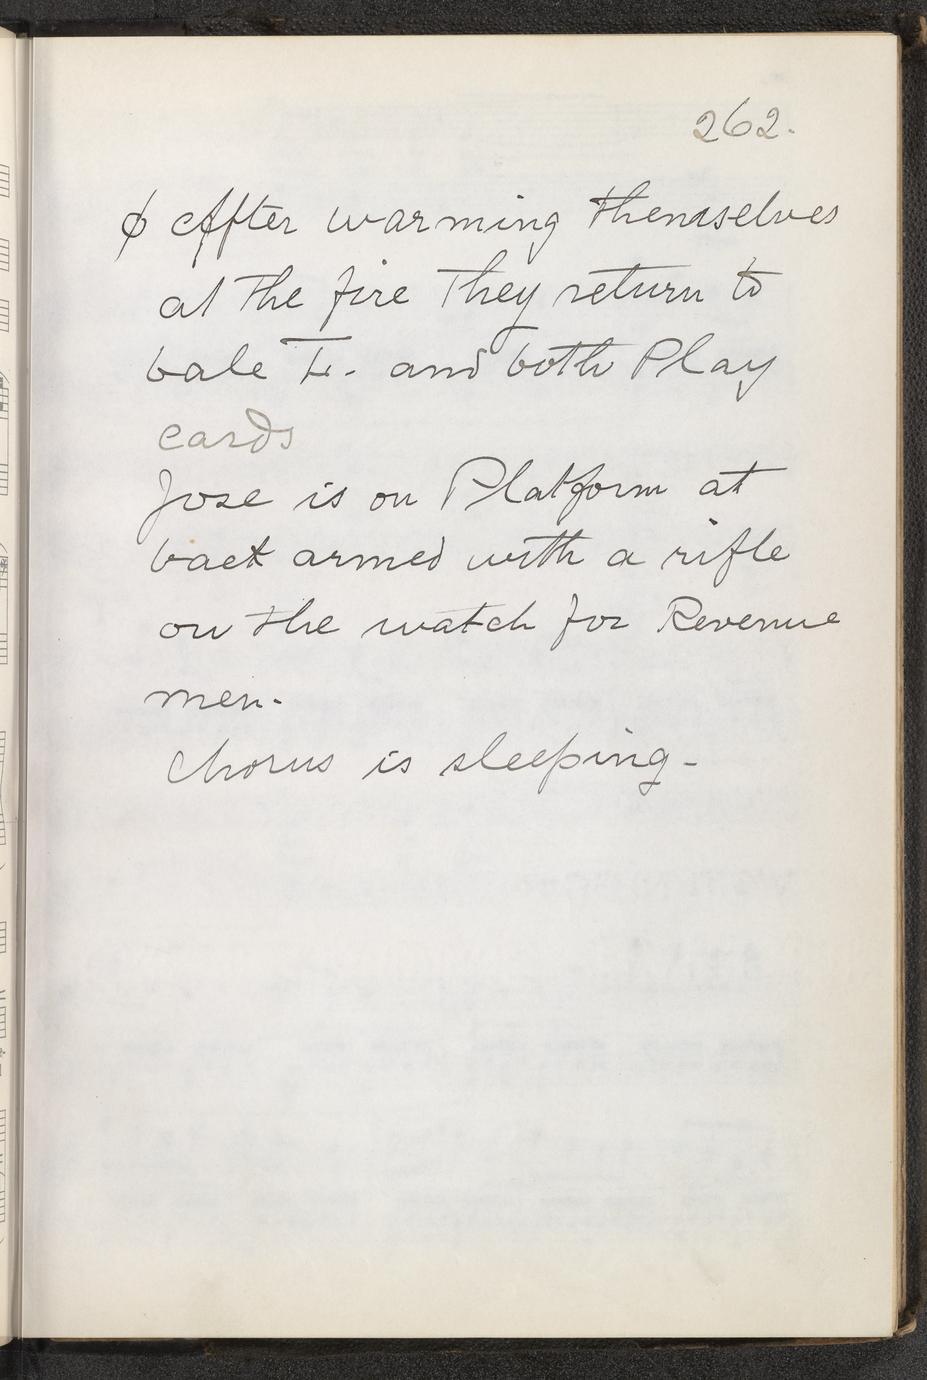 262.
ϕ After warming themselves
at the fire They return to
bale L. and both Play
cards
Jose is on Platform at
back armed with a rifle
on the watch for Revenue
men.
Chorus is sleeping.